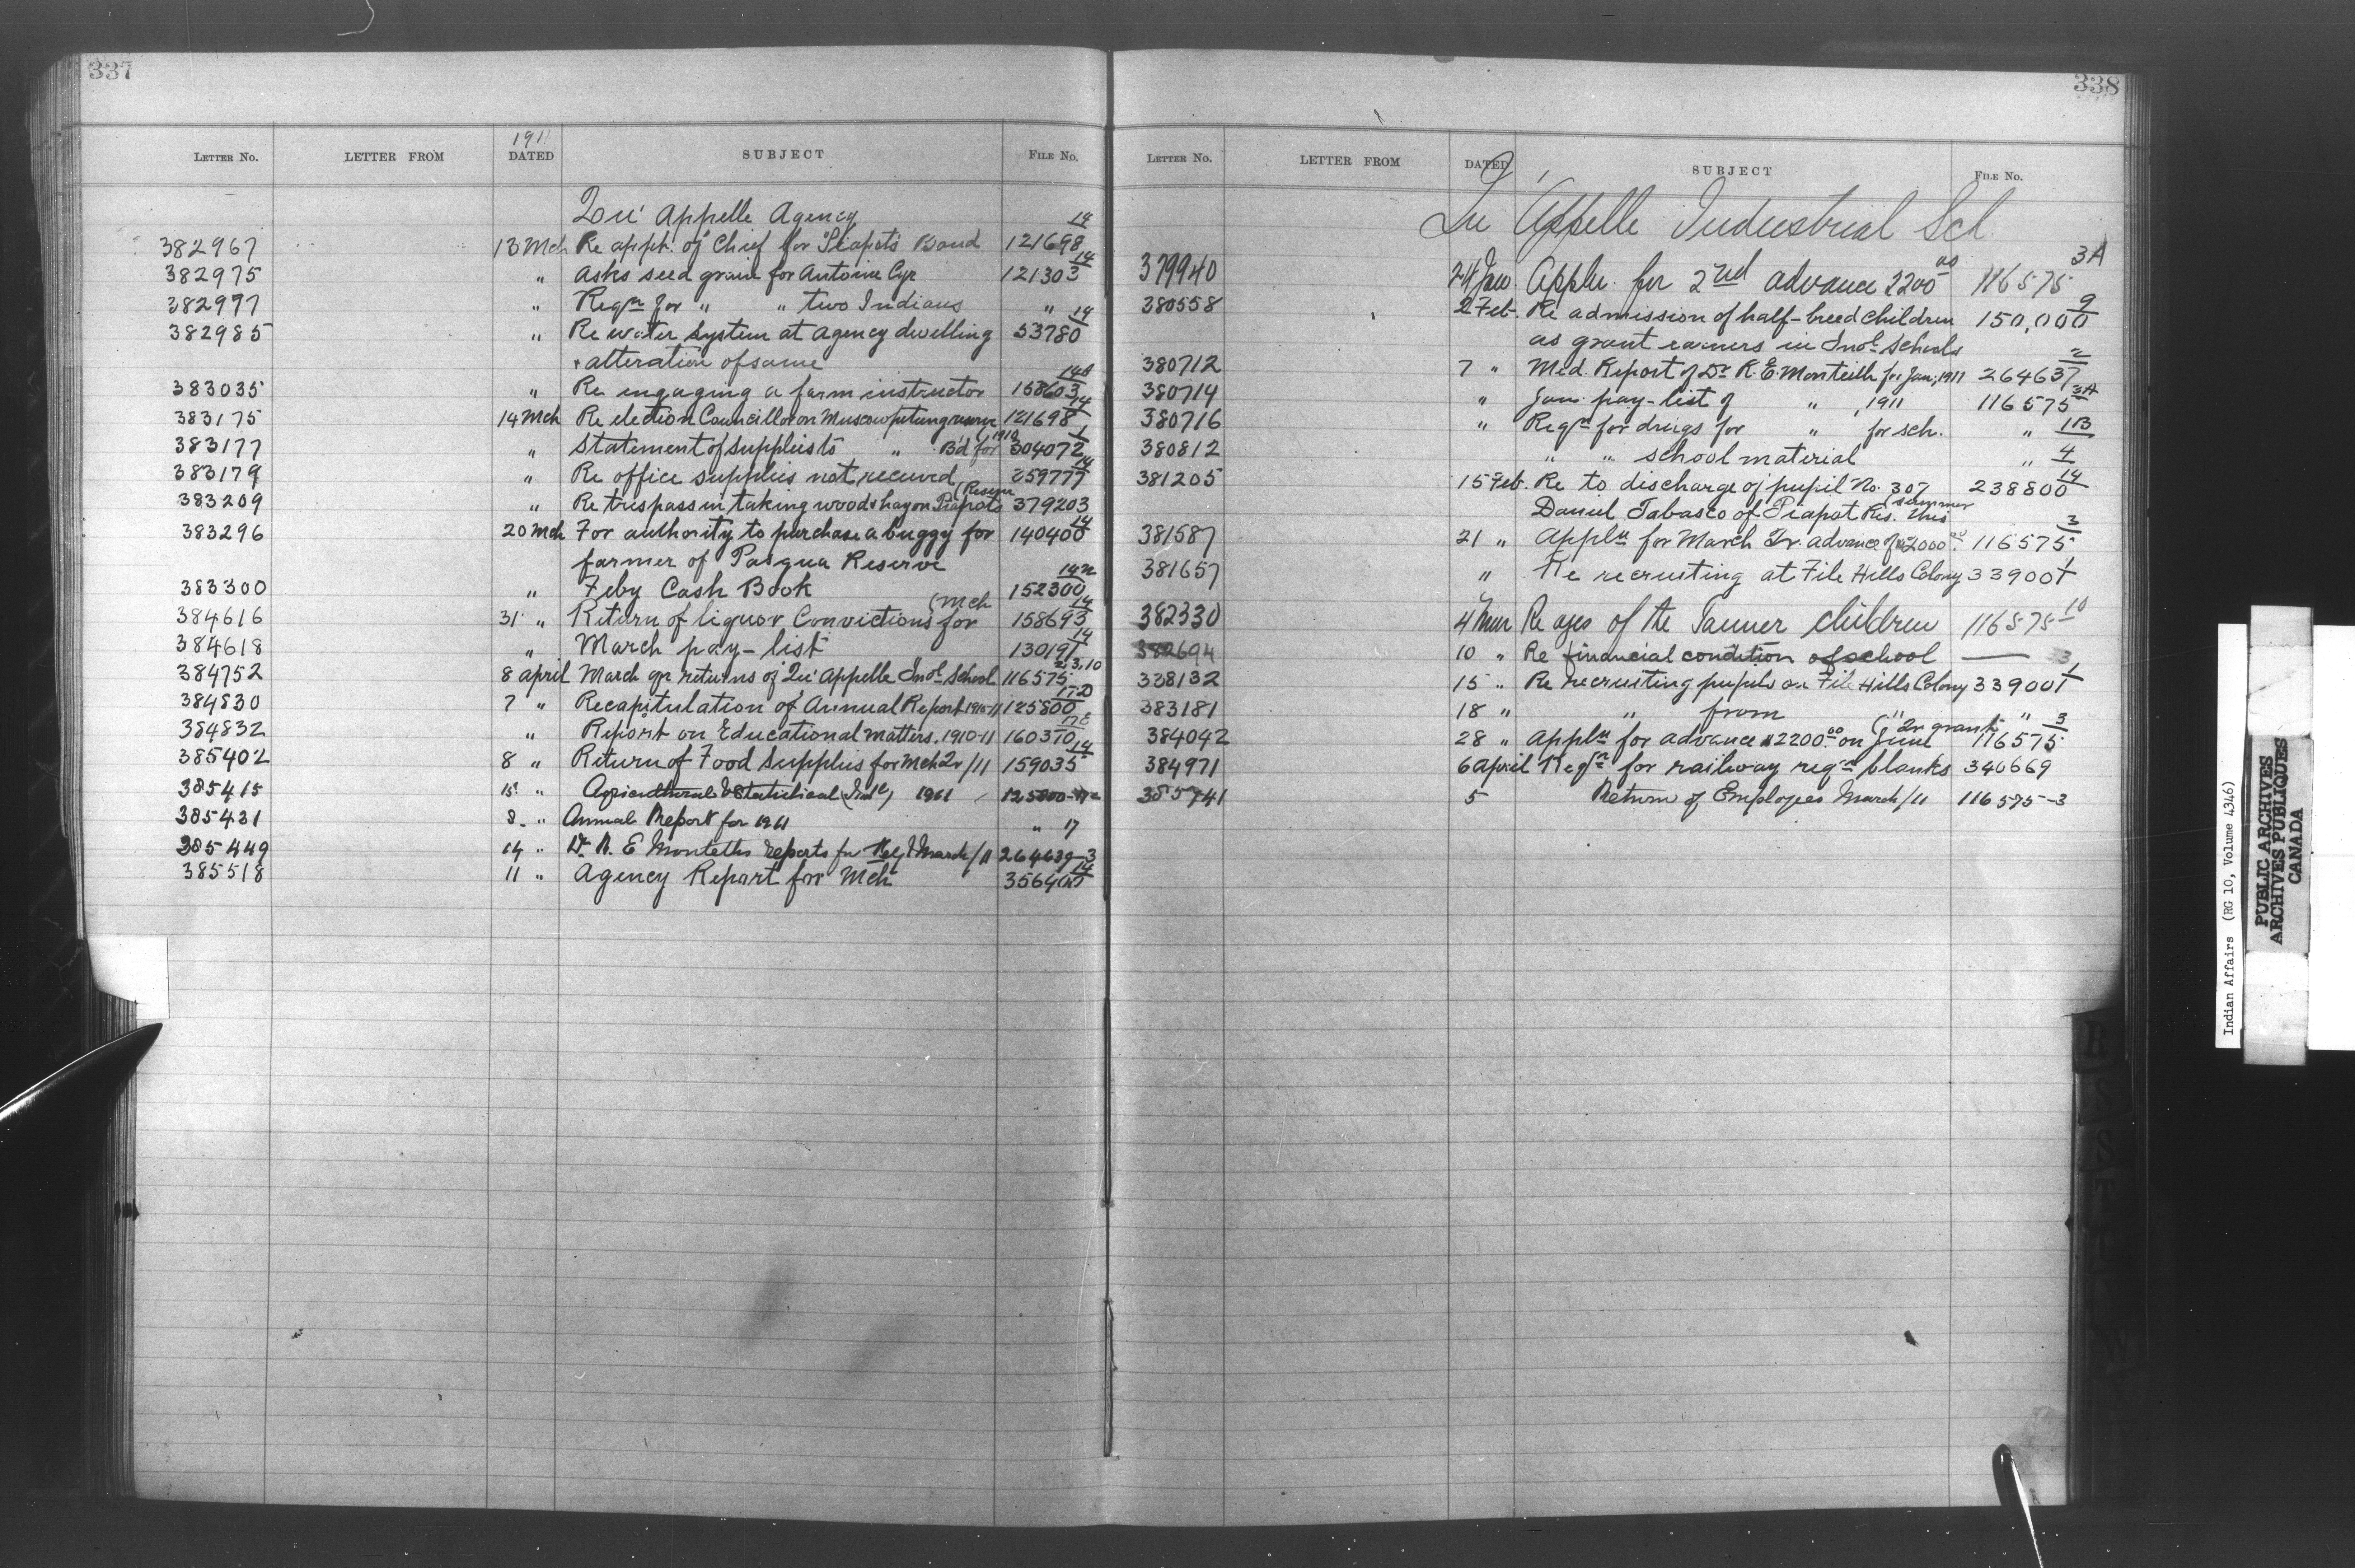 337
1911
LETTER No. LETTER FROM DATED SUBJECT FILE No.
Qu'Appelle Agency
382967 13 Mch Re appt. of Chief for Piapot's Band 121698 14
382975 " Asks seed grain for Antoine Cyr 121303 14
382977 " Reqn for " " two Indians "
382985 " Re water system at agency dwelling 53780 14
+ alteration of same
383035 " Re engaging a farm instructor 158603 14
383175 14 Mch Re election Councillor on Muscowpetung reserve 121698 14
383177 " Statement of supplies to " B'd for 1910 304072 1
383179 " Re office supplies not received 259777 14
383209 " Re trespass in taking wood & hay on Piapots (Reserve 379203
383296 20 Mch For authority to purchase a buggy for 140400 14
farmer of Pasqua Reserve
383300 " Feby Cash Book 152300 14
384616 31 " Return of liquor Convictions for (Mch 158693 14
384618 " March pay-list 130191 14
384752 8 april March qr returns of Qu'Appelle Indl School 116575 2,3,10
384830 7 " Recapitulation of Annual Report 1910-11 125800 17D
384832 " Report on Educational matters. 1910-11 160370
385402 8 " Return of Food Supplies for Mch Qr /11 159035 14
385415 15 " Agricultural & Statistical 1911 125800
385431 8 " Annual Report for 1911 " 17
385449 14 " Dr. R. E Monteths reports for Feby & March /11 264639-3
385518 11 " Agency Report for Mch 356400 14
338
LETTER No. LETTER FROM DATED SUBJECT FILE No.
Qu'Appelle Industrial Sch
379940 24 Jan. Appln. for 2nd advance 2200 00 116575 3A
380558 2 Feb. Re admission of half-breed children 150,000 9
as grant earners in Indl schools
380712 7 " Med. Report of Dr R. E. Monteith for Jan, 1911 264637 2
380714 " Jan. pay-list of " , 1911 116575 3A
380716 " Reqn for drugs for " for sch. " 13
380812 " " school material " 4
381205 15 Feb. Re to discharge of pupil No. 307 238800 14
Daniel Tabasco of Piapot Res. this (summer
381587 21 " Appln for March Qr. advance of $2000 00 116575 3
381657 " Re recruiting at File Hills Colony 339001 1
382330 4 Mar Re ages of the Tanner children 116575 10
382694 10 " Re financial condition of school — 3
338132 15 " Re recruiting pupils on File Hills Colony 339001 1
383181 18 " " from " "
384042 28 " Appln for advance $2200.00 on June (Qr grant 116575 3
384971 6 april Reqn for railway reqn blanks 340669
385741 5 Return of Employees March /11 116575-3
Indian Affairs (RG 10, Volume 4346)
PUBLIC ARCHIVES
ARCHIVES PUBLIQUES
CANADA